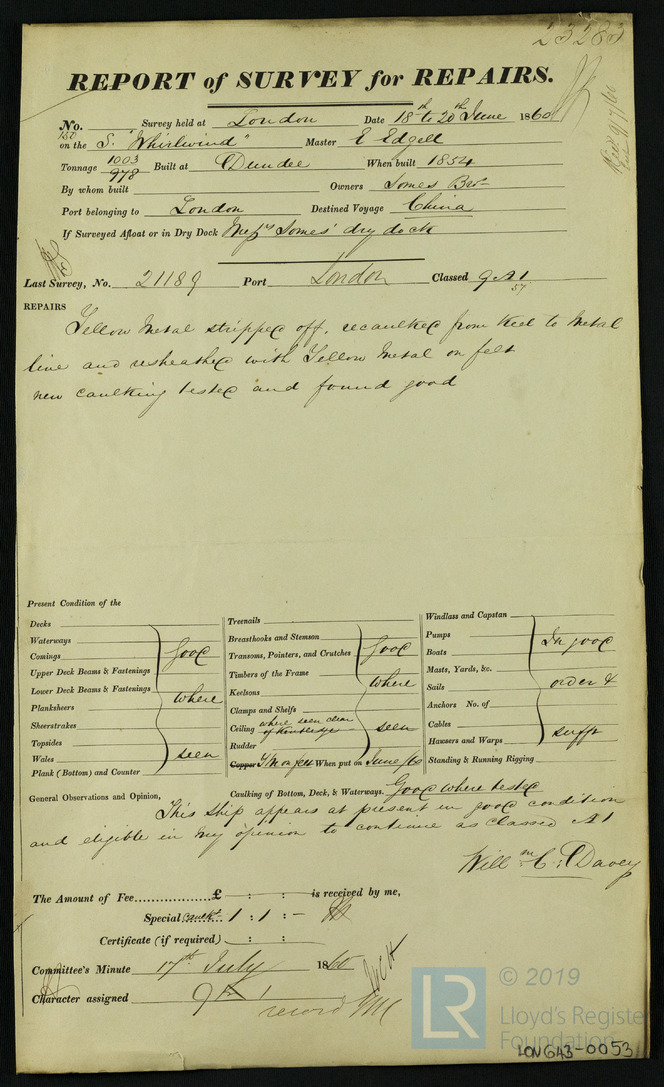 23283
REPORT of SURVEY for REPAIRS.
No. Survey held at London Date 18th to 20th June 1860
150
on the S. "Whirlwind" Master E Edgell
Tonnage 1003 978 Built at Dundee When built 1854
By whom built Owners Somes Bros
Port belonging to London Destined Voyage China
If Surveyed Afloat or in Dry Dock Messrs Somes' dry dock
Last Survey, No. 21189 Port London Classed 9 A1
57
REPAIRS
Yellow Metal stripped off, recaulked from Keel to Metal
line and resheathed with Yellow Metal on felt
new caulking tested and found good
Present Condition of the
Decks
Waterways
Comings
Upper Deck Beams & Fastenings
Lower Deck Beams & Fastenings
Planksheers
Sheerstrakes
Topsides
Wales
Plank (Bottom) and Counter
Good
where
seen
Treenails
Breasthooks and Stemson
Transoms, Pointers, and Crutches
Timbers of the Frame
Keelsons
Clamps and Shelfs
Ceiling where seen clear of Kentledge
Rudder
Copper Y/M on felt When put on June/60
Good
where
seen
Windlass and Capstan
Pumps
Boats
Masts, Yards, &c.
Sails
Anchors No. of
Cables
Hawsers and Warps
Standing & Running Rigging
In good
order &
sufft
General Observations and Opinion, Caulking of Bottom, Deck, & Waterways. Good where tested
This ship appears at present in good condition
and eligible in my opinion to continue as classed A1
Willm C. Davey
The Amount of Fee £ : : is received by me,
Special Caulk 1 : 1 : -
Certificate (if required) : :
Committee's Minute 17th July 1860
Character assigned 9 A 1
record YMC
© 2019
LR
Lloyd's Register
Foundation
LON643-0053